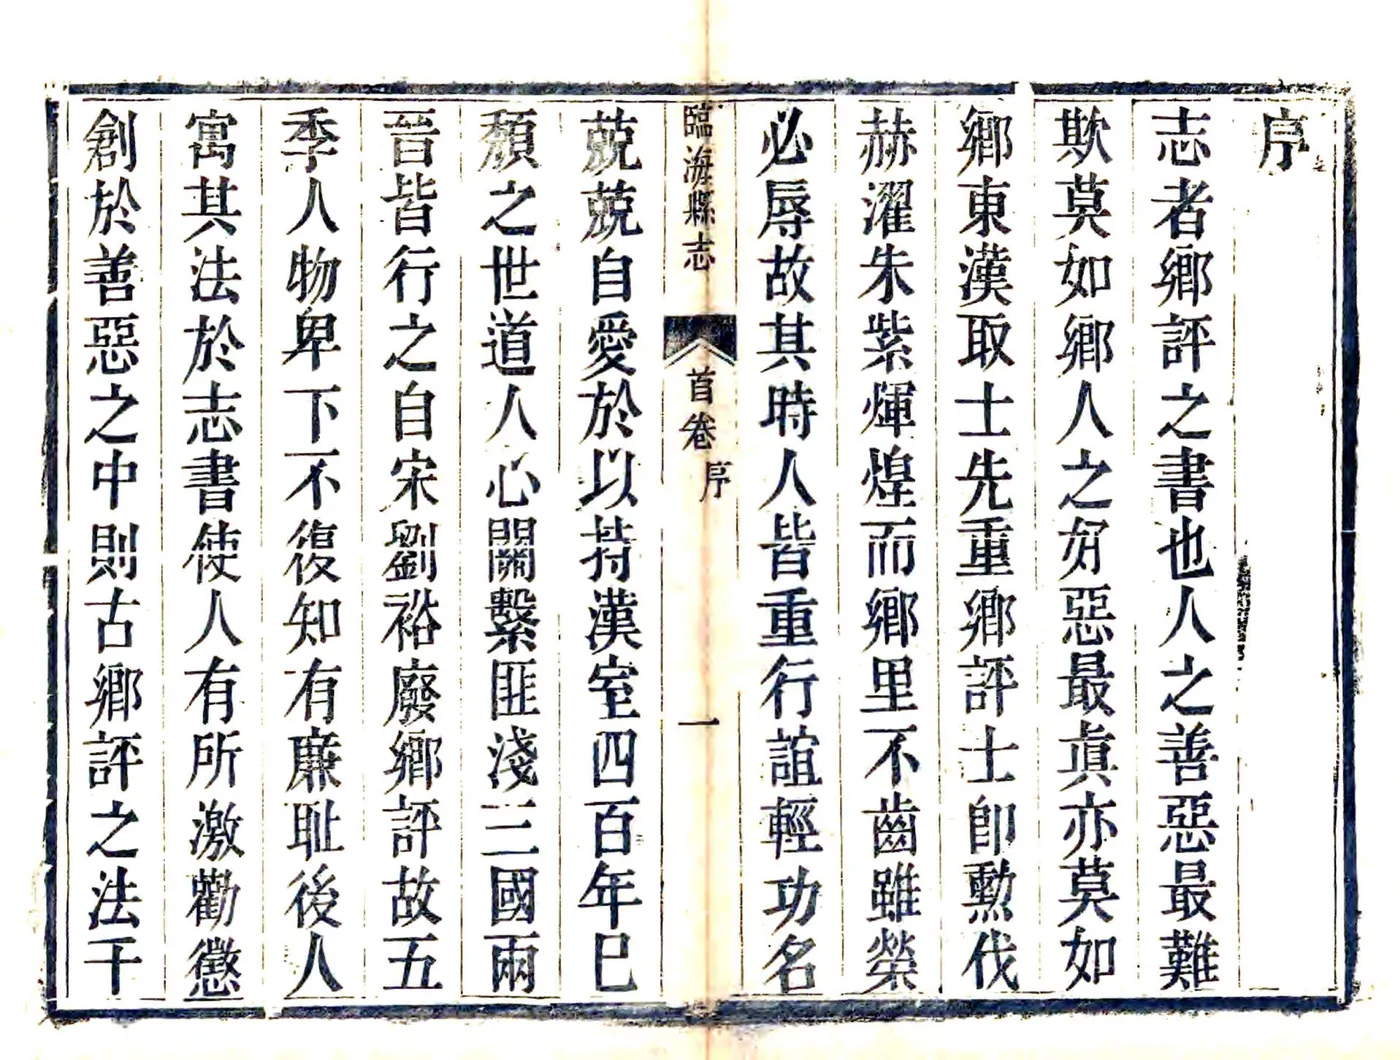 序
志者鄉評之書也人之善惡最難
欺莫如鄉人之好惡最眞亦莫如
鄉東漢取士先重鄉評士卽勲伐
赫濯朱紫煇煌而鄉里不齒雖榮
必辱故其時人皆重行誼輕功名
臨海縣志
首卷
序
一
兢兢自愛於以持漢室四百年已
頹之世道人心關繫匪淺三國兩
晉皆行之自宋劉裕廢鄉評故五
季人物卑下不復知有廉耻後人
寓其法於志書使人有所激勸懲
創於善惡之中則古鄉評之法干